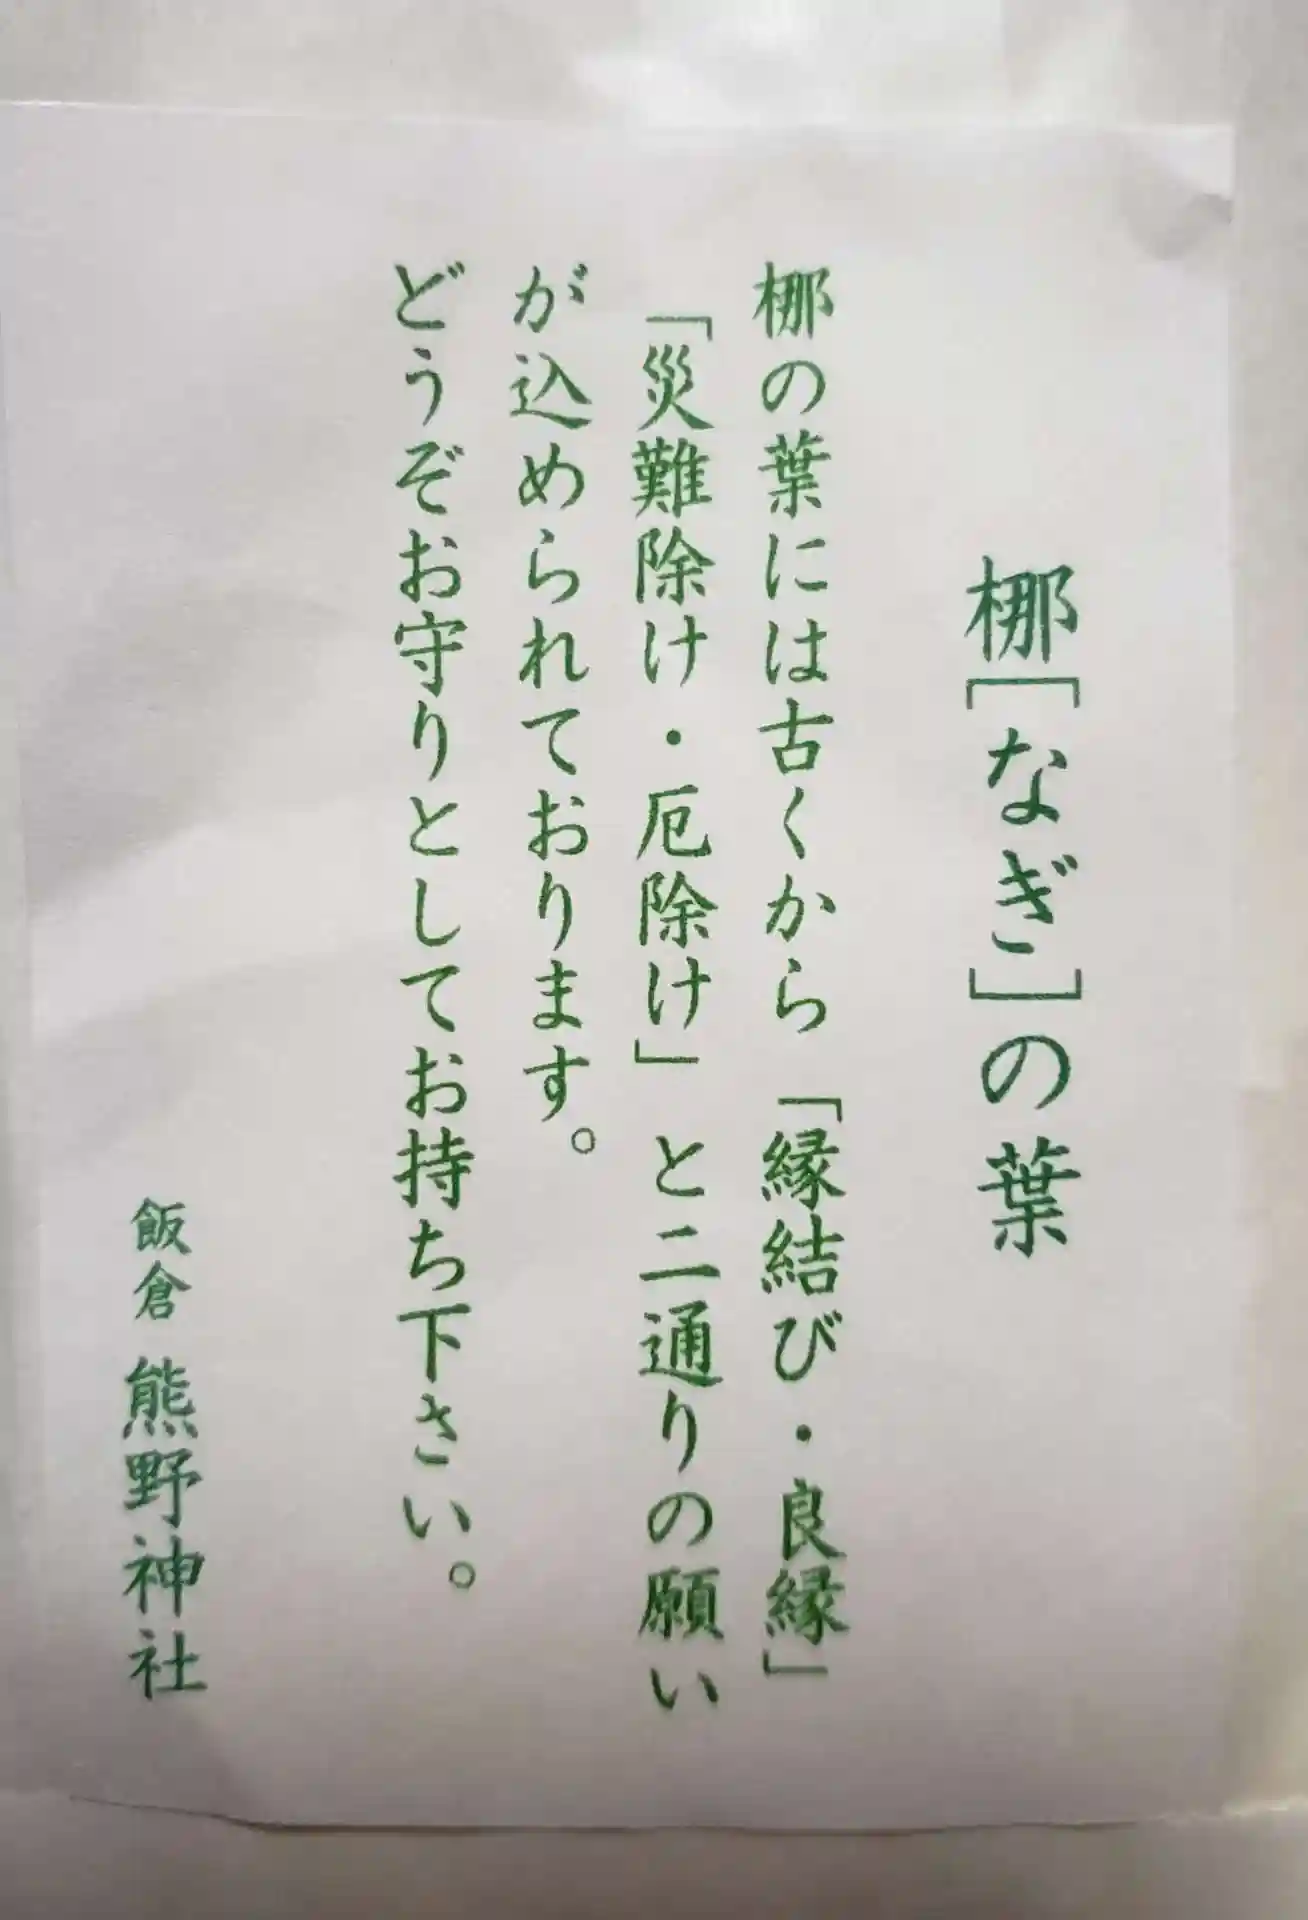 梛[なぎ]の葉
梛の葉には古くから「縁結び・良縁」
「災難除け・厄除け」と二通りの願い
が込められております。
どうぞお守りとしてお持ち下さい。
飯倉 熊野神社